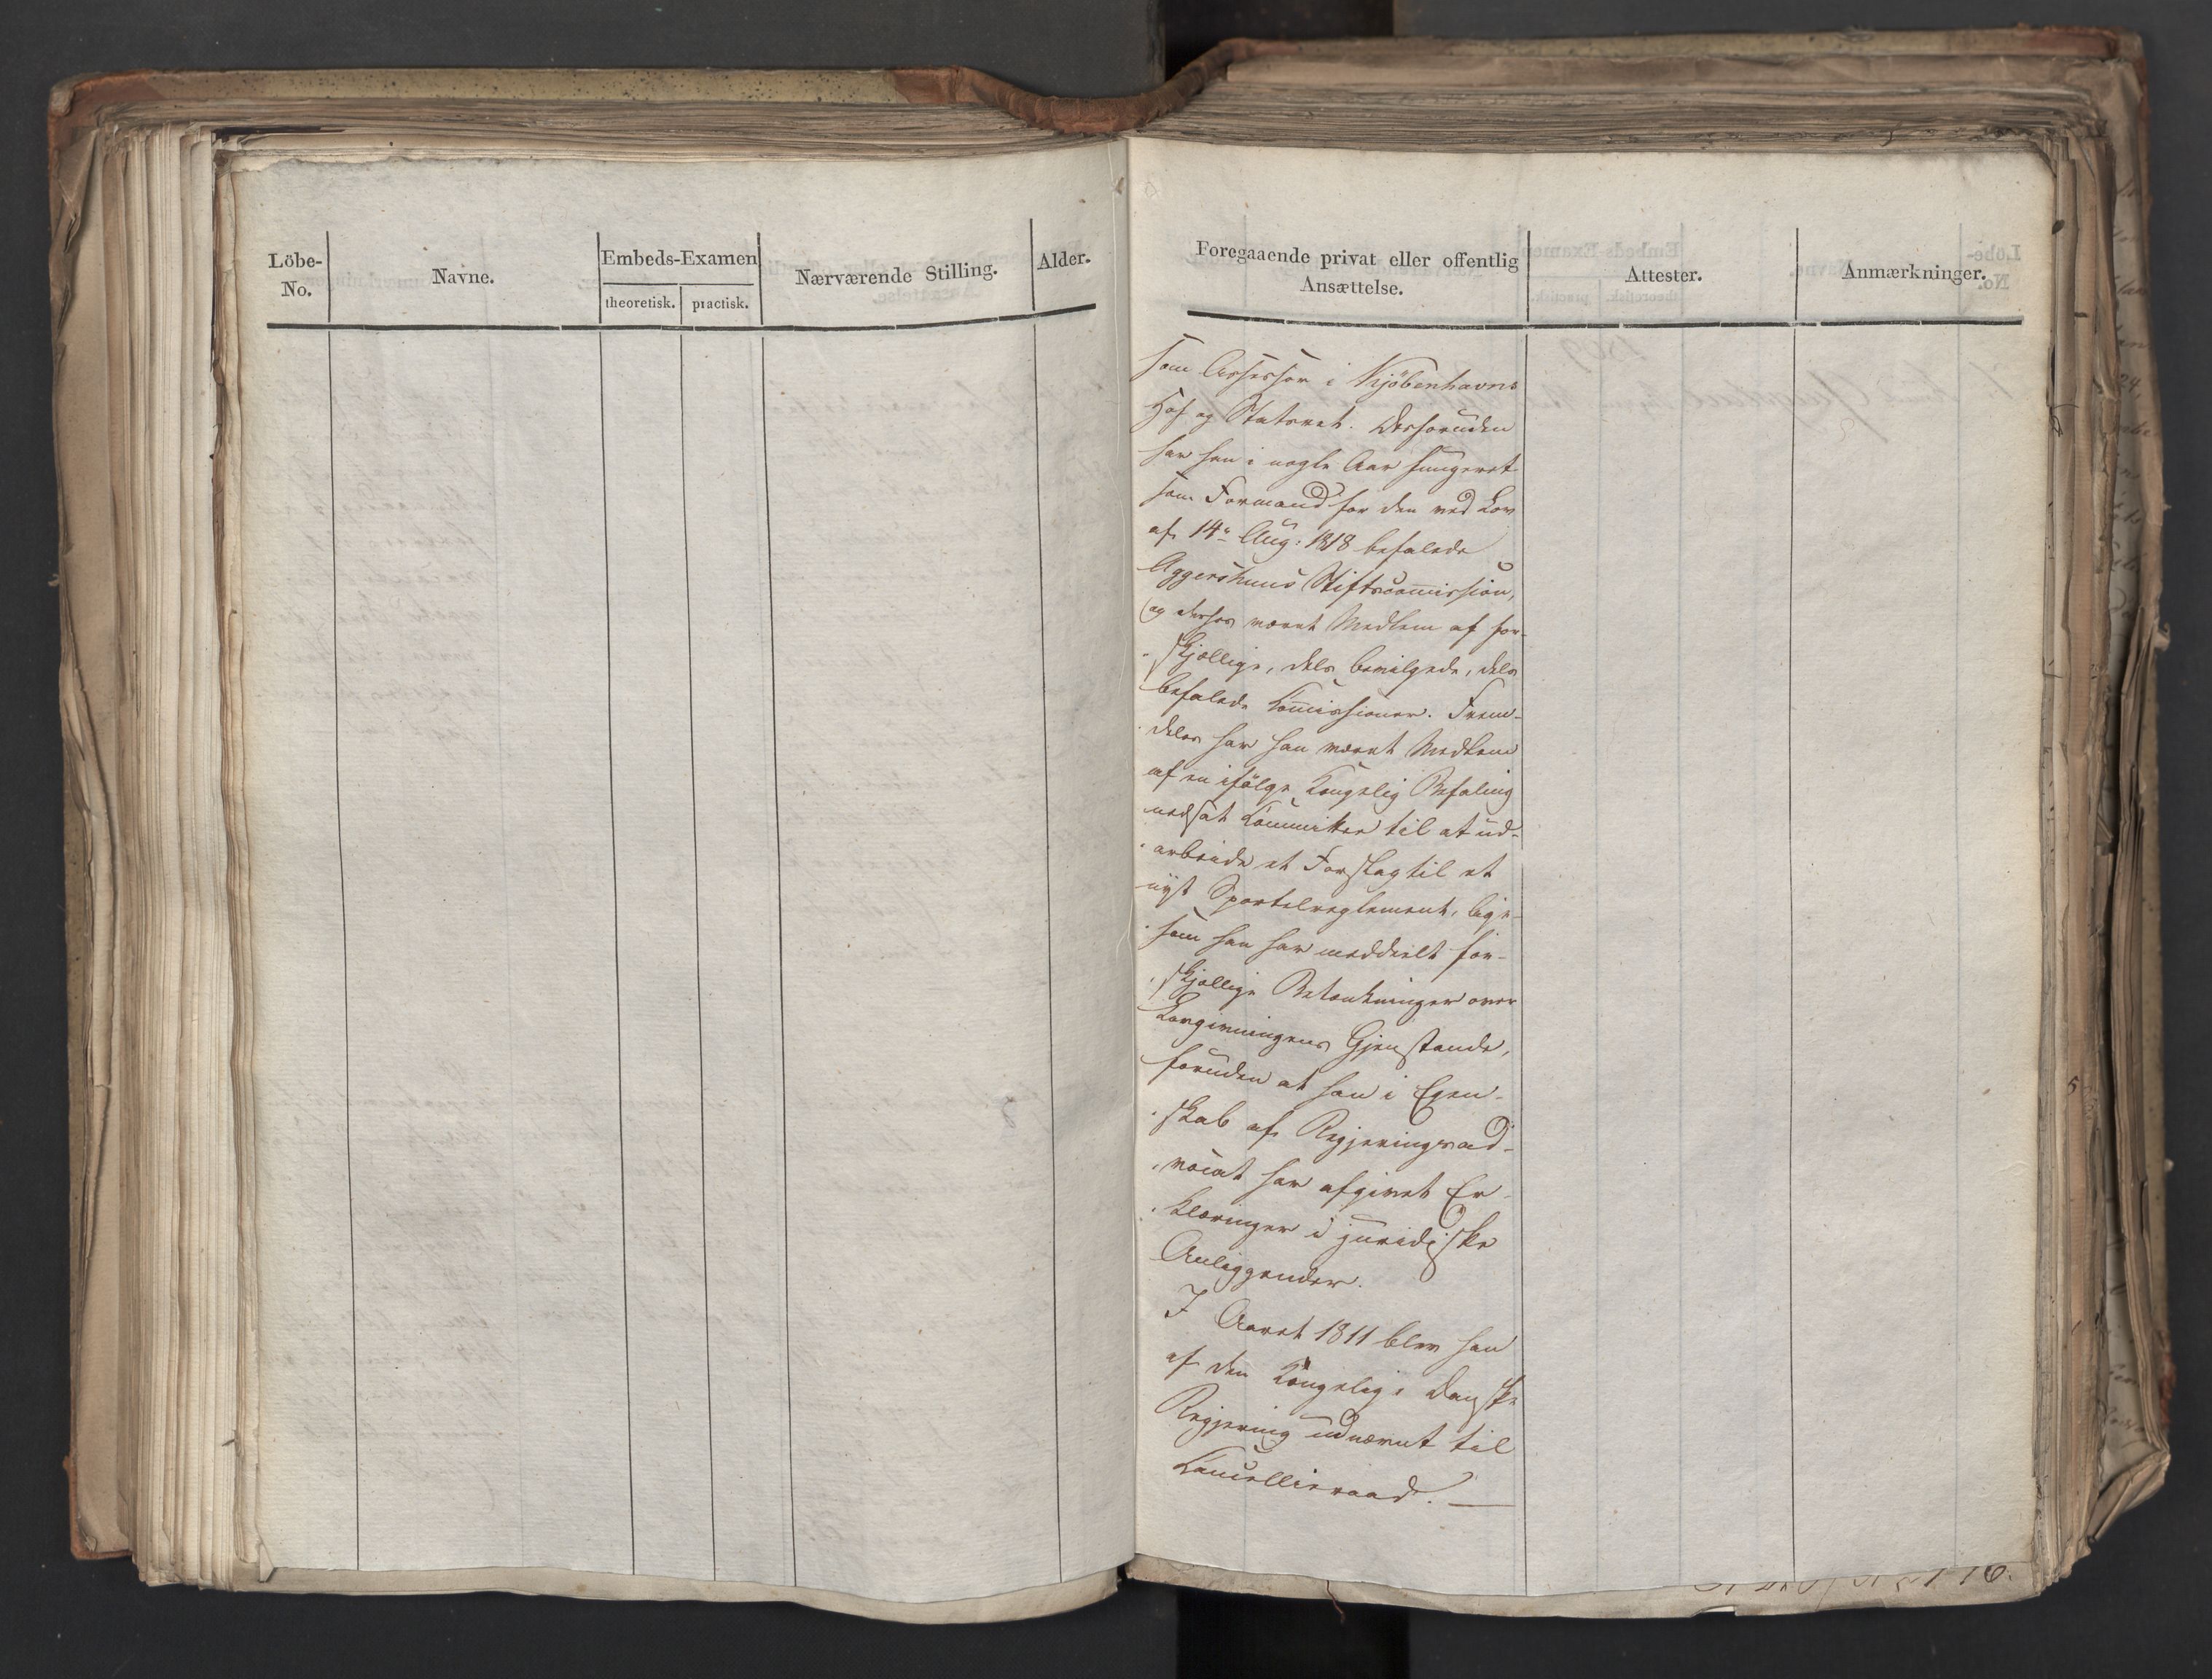 Löbe-
No.
Navne.
Embeds-Examen
theoretisk.
practisk.
Nærværende Stilling.
Alder.
Foregaaende privat eller offentlig
Ansættelse.
Attester.
Anmærkninger.
som Assessor i Kjöbenhavns
Hof og Statsret. Desforuden
har han i nogle Aar fungeret
som Formand for den ved Lov
af 14de Aug: 1818 befalede
Aggershuus Stiftscom̅ission,
og derhos været Medlem af for-
skjellige, dels bevilgede, dels
befalede Com̅issioner. Frem-
deles har han været Medlem
af en ifölge Kongelig Befaling
nedsat Committee til at ud-
arbeide et Forslag til et
nyt Sportelreglement, lige-
som han har meddeelt for-
skjellige Betænkninger over
Lovgivningens Gjenstande,
foruden at han i Egen-
skab af Regjeringsad-
vocat har afgivet Er-
klæringer i juridiske
Anliggender.
I Aaret 1811 blev han
af den Kongelige danske
Regjering udnævnt til
Cancellieraad. —